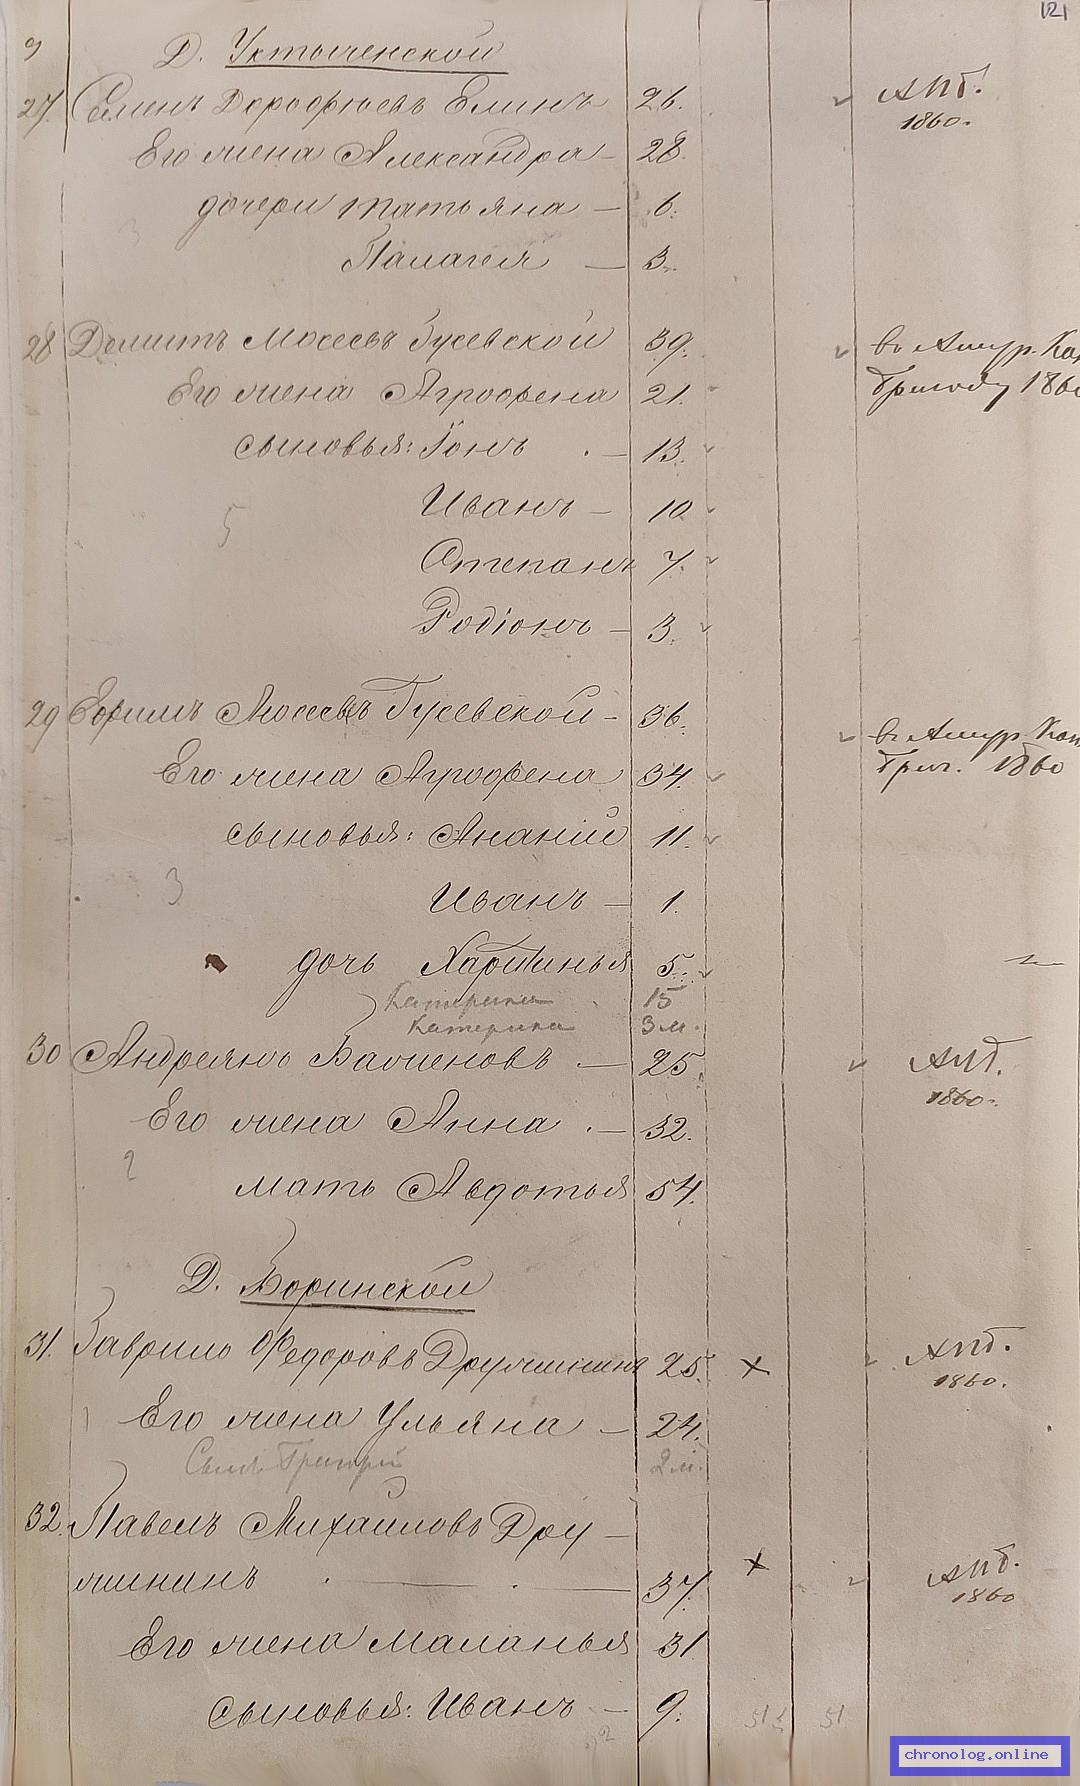 121
9 Д. Уктыченской
27. Семенъ Дорофѣевъ Елинъ 26. АПБ.
1860.
Его жена Александра — 28.
дочери Татьяна — 6.
3
Палагея — 3.
28 Демитъ Мосеевъ Гусевской 39. въ Амур. Кон
Его жена Агрофена 21. бригаду 1860
сыновья: Іонъ — 13.
Иванъ — 10
5
Степанъ 7.
Родіонъ — 3.
29 Ефимъ Мосеевъ Гусевской — 36. въ Амур. Кон
Его жена Агрофена 34. бриг. 1860
сыновья: Ананій 11.
3
Иванъ — 1.
дочь Харитинья 5.
Катерина 15
Катерина 3 м.
30 Андреянъ Баженовъ — 25. АПБ.
1860.
Его жена Анна — 32.
2
мать Авдотья 54.
Д. Боринской
31. Гаврило Федоровъ Дружининъ 25. × АПБ.
1860.
1 Его жена Ульяна — 24.
Сынъ Григорій 2 м.
32. Павелъ Михаиловъ Дру-
жининъ — 37. × АПБ.
1860
Его жена Маланья 31
сыновья: Иванъ — 9. 51 51
2
chronolog.online